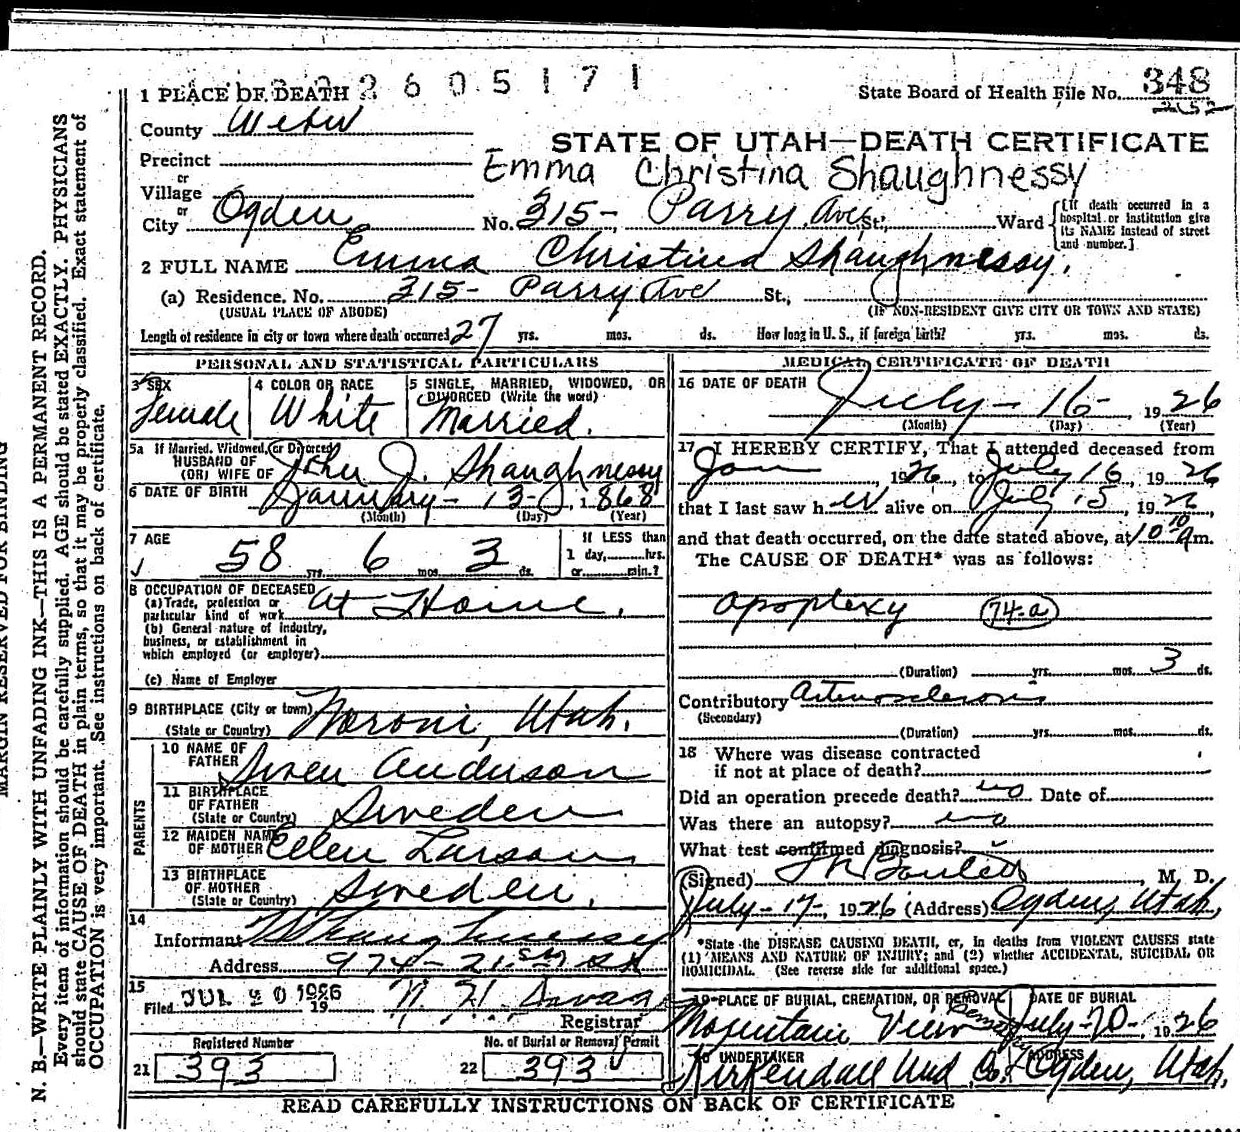 2 6 0 5 1 7 1
1 PLACE OF DEATH
State Board of Health File No. 348
County Weber
STATE OF UTAH—DEATH CERTIFICATE
Precinct
or
Emma Christina Shaughnessy
Village
or
City Ogden No. 315- Parry Ave St; Ward
[If death occurred in a hospital or institution give its NAME instead of street and number.]
2 FULL NAME Emma Christina Shaughnessy.
(a) Residence. No. 315- Parry Ave St.,
(USUAL PLACE OF ABODE) (IF NON-RESIDENT GIVE CITY OR TOWN AND STATE)
Length of residence in city or town where death occurred 27 yrs. mos. ds. How long in U. S., if foreign birth? yrs. mos. ds.
PERSONAL AND STATISTICAL PARTICULARS
3 SEX
Female
4 COLOR OR RACE
White
5 SINGLE, MARRIED, WIDOWED, OR
DIVORCED (Write the word)
Married.
5a If Married, Widowed, or Divorced
HUSBAND OF
(OR) WIFE OF John J. Shaughnessy
6 DATE OF BIRTH January - 13 - 1868
(Month) (Day) (Year)
7 AGE
58 yrs. 6 mos. 3 ds.
If LESS than
1 day, hrs.
or min.?
8 OCCUPATION OF DECEASED
(a) Trade, profession or
particular kind of work At Home.
(b) General nature of industry,
business, or establishment in
which employed (or employer)
(c) Name of Employer
9 BIRTHPLACE (City or town)
(State or Country) Moroni, Utah.
PARENTS
10 NAME OF
FATHER Swen Anderson
11 BIRTHPLACE
OF FATHER
(State or Country) Sweden
12 MAIDEN NAME
OF MOTHER Ellen Larson
13 BIRTHPLACE
OF MOTHER
(State or Country) Sweden.
14
Informant Shaughnessy
Address 974 - 21st St
15
Filed JUL 20 1926
19
Registrar
Registered Number
21 393
No. of Burial or Removal Permit
22 393
MEDICAL CERTIFICATE OF DEATH
16 DATE OF DEATH
July - 16 - , 1926
(Month) (Day) (Year)
17 I HEREBY CERTIFY, That I attended deceased from
Jan 1926, to July 16, 1926
that I last saw her alive on July 15, 1926,
and that death occurred, on the date stated above, at 10 10 A m.
The CAUSE OF DEATH* was as follows:
Apoplexy 74-a
(Duration) yrs. mos. 3 ds.
Contributory Arteriosclerosis
(Secondary)
(Duration) yrs. mos. ds.
18 Where was disease contracted
if not at place of death?
Did an operation precede death? no Date of
Was there an autopsy? no
What test confirmed diagnosis?
(Signed) , M. D.
July - 17-, 1926 (Address) Ogden, Utah,
*State the DISEASE CAUSING DEATH, or, in deaths from VIOLENT CAUSES state
(1) MEANS AND NATURE OF INJURY; and (2) whether ACCIDENTAL, SUICIDAL OR
HOMICIDAL. (See reverse side for additional space.)
19 PLACE OF BURIAL, CREMATION, OR REMOVAL
Mountain View
DATE OF BURIAL
July-20-, 1926
20 UNDERTAKER
Kirkendall Und. Co.
ADDRESS
Ogden, Utah.
READ CAREFULLY INSTRUCTIONS ON BACK OF CERTIFICATE
MARGIN RESERVED FOR BINDING
N. B.—WRITE PLAINLY WITH UNFADING INK—THIS IS A PERMANENT RECORD.
Every item of information should be carefully supplied. AGE should be stated EXACTLY. PHYSICIANS
should state CAUSE OF DEATH in plain terms, so that it may be properly classified. Exact statement of
OCCUPATION is very important. See instructions on back of certificate.